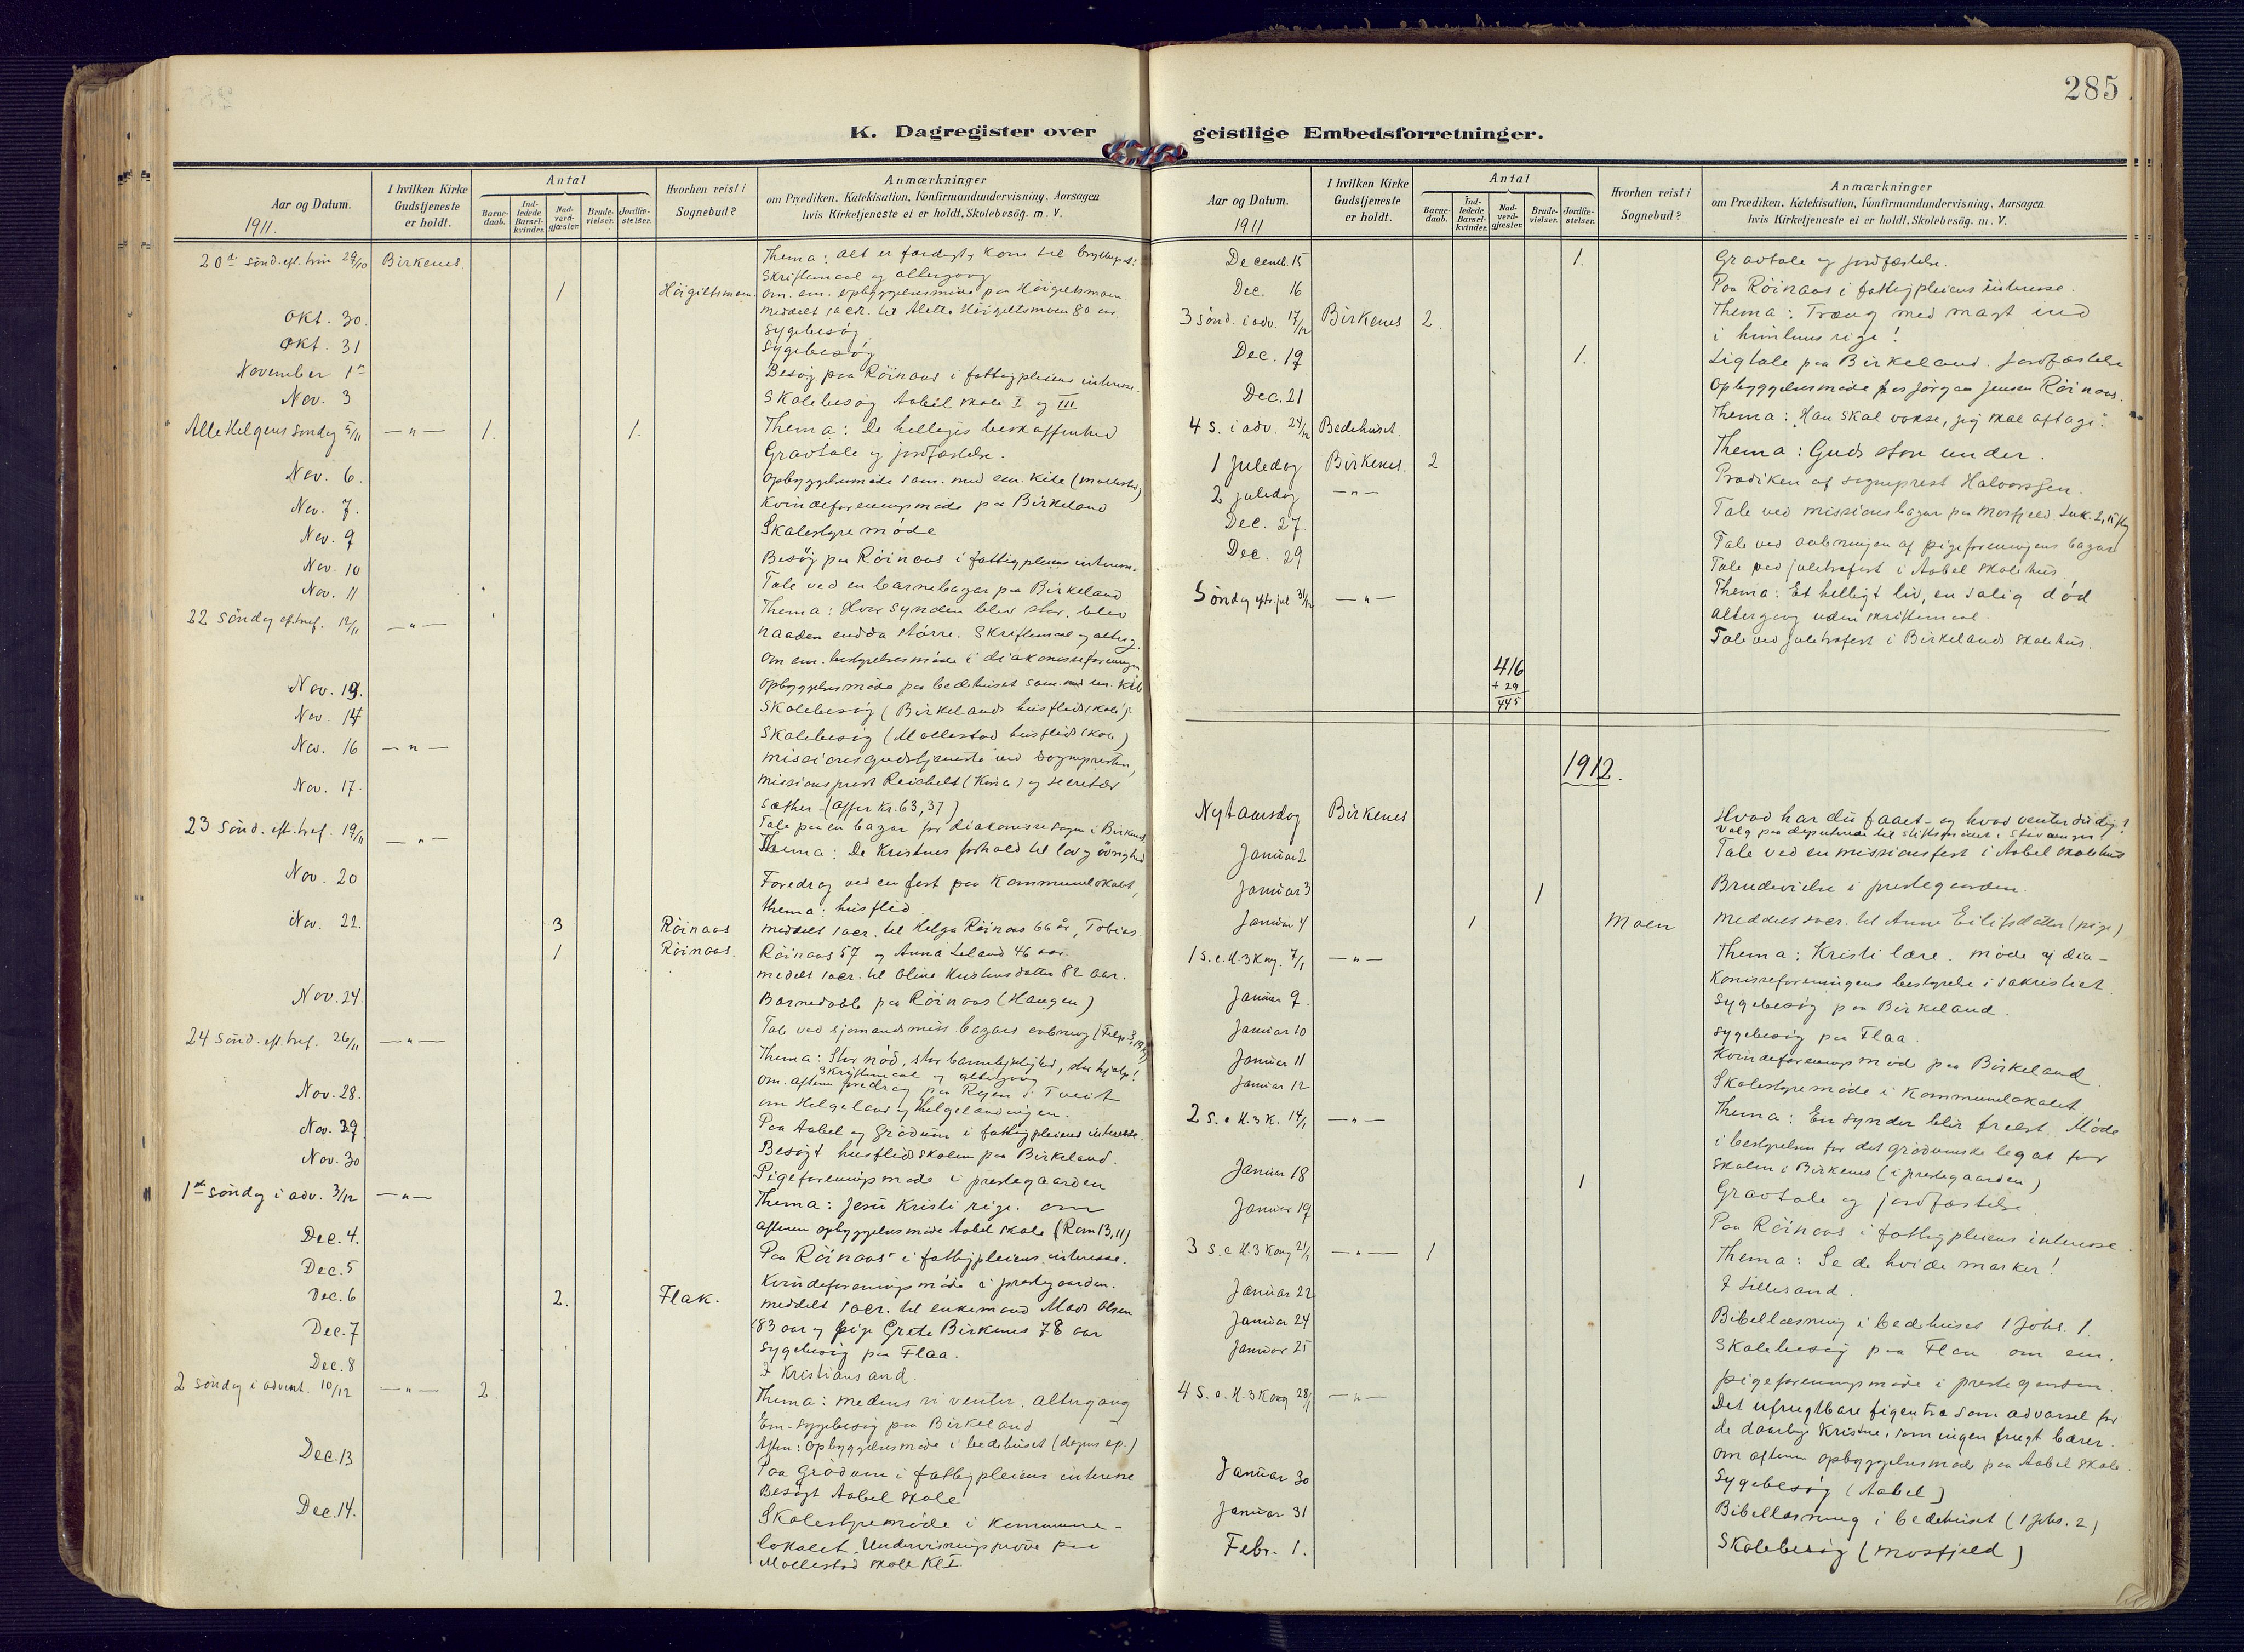 285
K. Dagregister over geistlige Embedsforretninger.
Aar og Datum.
1911.
I hvilken Kirke Gudstjeneste er holdt.
Antal
Barne-daab.
Ind-ledede Barsel-kvinder.
Nad-verd-gjæster.
Brude-vielser.
Jordfæ-stelser.
Hvorhen reist i Sognebud?
Anmærkninger
om Prædiken, Katekisation, Konfirmandundervisning, Aarsagen
hvis Kirketjeneste ei er holdt. Skolebesøg. m. V.
20de sønd. eft. trin 29/10 Birkenes. Thema: Alt er færdigt, kom til bryllupet!
Skriftemaal og altergang
1 Høigiltsmoen. Om. em. opbyggelsesmøde paa Høigiltsmoen
meddelt sacr. til Aletta Høigiltsmoen 80 aar.
Okt. 30. Sygebesøg
Okt. 31 Sygebesøg
November 1 Besøg paa Röinaas i fattigpleiens interesse.
Nov. 3 Skolebesøg Aabel skole I og III
Alle Helgens søndag 5/11 —"— 1. 1. Thema: De helliges beskaffenhed
Gravtale og jordfæstelse.
Nov. 6. Opbyggelsesmøde sam. med em. Kile (Mollestad)
Nov. 7. Kvindeforeningsmøde paa Birkeland
Nov. 9 Skolestyremøde
Nov. 10 Besøg paa Röinaas i fattigpleiens interesse.
Nov. 11 Tale ved en barnebazar paa Birkeland
22 søndag ef. tref. 12/11 —"— Thema: Hvor synden blev stor, blev
naaden endda større. Skriftemaal og alterg.
Om em. bestyrelsesmøde i diakonisseforeningen
Nov. 13. Opbyggelsesmøde paa bedehuset sam. med em. Kile
Nov. 14 Skolebesøg (Birkelands husflidskole)
Nov. 16 —"— Skolebesøg (Mollestad husflidskole)
missionsgudstjeneste ved sognepresten,
Nov. 17. missionsprest Reichelt (Kina) og secretær
Sæther (Offer Kr. 63,37)
Tale paa en bazar for diakonissesagen i Birkenes
23 Sønd. eft. tref. 19/11 —"— Thema: De kristnes forhold til lov og øvrighed
Nov. 20 Foredrag ved en fest paa Kommunelokalet,
thema: husflid
Nov. 22. 3 Röinaas meddelt sacr. til Helga Röinaas 66 år, Tobias
1 Röinaas. Röinaas 57 og Anna Leland 46 aar.
meddelt sacr. til Oline 82 aar.
Nov. 24. Barnedaab paa Röinaas (Haugen)
Tale ved sjømandsmiss. bazars aabning
24 Sønd. eft. tref. 26/11 —"— Thema: Stor nød, stor barmhjertighed, stor hjelp!
Skriftemaal og altergang
Nov. 28. Om. aftenen foredrag paa Ryen i Tveit
om Helgeland og Helgelændingen.
Nov. 29 Paa Aabel og Grödum i fattigpleiens interesse.
Nov. 30 Besøgt husflidsskolen paa Birkeland.
Pigeforeningsmøde i prestegaarden
1ste søndag i adv. 3/12 —"— Thema: Jesu Kristi rige. om
aftenen opbyggelsesmøde Aabel skole (Rom 13,11)
Dec. 4. Paa Röinaas i fattigpleiens interesse.
Dec. 5 Kvindeforeningsmøde i prestegaarden.
Dec. 6 2. Flak. meddelt sacr. til enkemand Mads Olsen
Dec. 7 83 aar og pige Grete Birkenes 78 aar
Sygebesøg paa Flaa.
Dec. 8 I Kristiansand.
2 søndag i advent. 10/12 —"— 2. Thema: medens vi venter. altergang
Em. Sygebesøg paa Birkeland
Aften: Opbyggelsesmøde i bedehuset (dagens ep.)
Dec. 13 Paa Grödum i fattigpleiens interesse
Besøgt Aabel skole
Dec. 14. Skolestyremøde i kommune-
lokalet. Undervisningsprøve paa
Mollestad skole Kl I.
Aar og Datum.
1911
I hvilken Kirke Gudstjeneste er holdt.
Antal
Barne-daab.
Ind-ledede Barsel-kvinder.
Nad-verd-gjæster.
Brude-vielser.
Jordfæ-stelser.
Hvorhen reist i Sognebud?
Anmærkninger
om Prædiken, Katekisation, Konfirmandundervisning, Aarsagen
hvis Kirketjeneste ei er holdt. Skolebesøg. m. V.
Decemb. 15 1. Gravtale og jordfæstelse.
Dec. 16 Paa Röinaas i fattigpleiens interesse.
3 Sønd. i adv. 17/12 Birkenes 2. Thema: Træng med magt ind
i himlens rige!
Dec. 19 1. Ligtale paa Birkeland. Jordfæstelse
Dec. 21 Opbyggelsesmøde hos Jørgen Jensen Röinaas.
4 S. i adv. 24/12 Bedehuset. Thema: "Han skal vokse, jeg skal aftage".
1 juledag Birkenes. 2 Thema: Guds store under.
2 juledag —"— Prædiken af sogneprest Halvorsen.
Dec. 27. Tale ved missionsbazar paa Mosfjeld. Luk. 2,
Dec. 29 Tale ved aabningen af pigeforeningens bazar
Tale ved juletrefest i Aabel skolehus
Søndag eft. jul 31/12 —"— Thema: Et helligt liv, en salig død
altergang uden skriftemaal.
Tale ved juletrefest i Birkelands skolehus.
416
+ 29
445
1912.
Nytaarsdag Birkenes Hvad har du faaet – og hvad venter du dig?
Valg paa deputerede til stiftsmødet i Stavanger.
Januar 2 Tale ved en missionsfest i Aabel skolehus
Januar 3 1 Brudevielse i prestegaarden.
Januar 4 1 Moen meddelt sacr. til Anne Eilifsdatter (pige)
1 S. e. H. 3 Kong. 7/1 —"— Thema: Kristi lære. Møde af dia-
konisseforeningens bestyrelse i sakristiet.
Januar 9. Sygebesøg paa Birkeland.
Januar 10 Sygebesøg paa Flaa.
Januar 11 Kvindeforeningsmøde paa Birkeland.
Januar 12 Skolestyremøde i Kommunelokalet.
2 S. e H. 3 K. 14/1 —"— Thema: En synder blir frelst. Møde
i bestyrelsen for det grödumske legat for
skolen i Birkenes (i prestegaarden)
Januar 18 1 Gravtale og jordfæstelse.
Januar 19 Paa Röinaas i fattigpleiens interesse.
3 S. e H. 3 Kong 21/1 —"— 1 Thema: Se de hvide marker!
Januar 22 I Lillesand.
Januar 24 Bibellæsning i bedehuset 1 Johs. 1.
Januar 25 Skolebesøg paa Flaa. om em.
pigeforeningsmøde i prestegaarden.
4 S. e. H. 3 Kong 28/1 —"— Det ufrugtbare figentræ som advarsel for
de daarlige kristne, som ingen frugt bærer.
om aftenen opbyggelsesmøde paa Aabel skole.
Januar 30 Sygebesøg (Aabel)
Januar 31 Bibellæsning i bedehuset (1 Johs. 2)
Febr. 1. Skolebesøg (Mosfjeld)